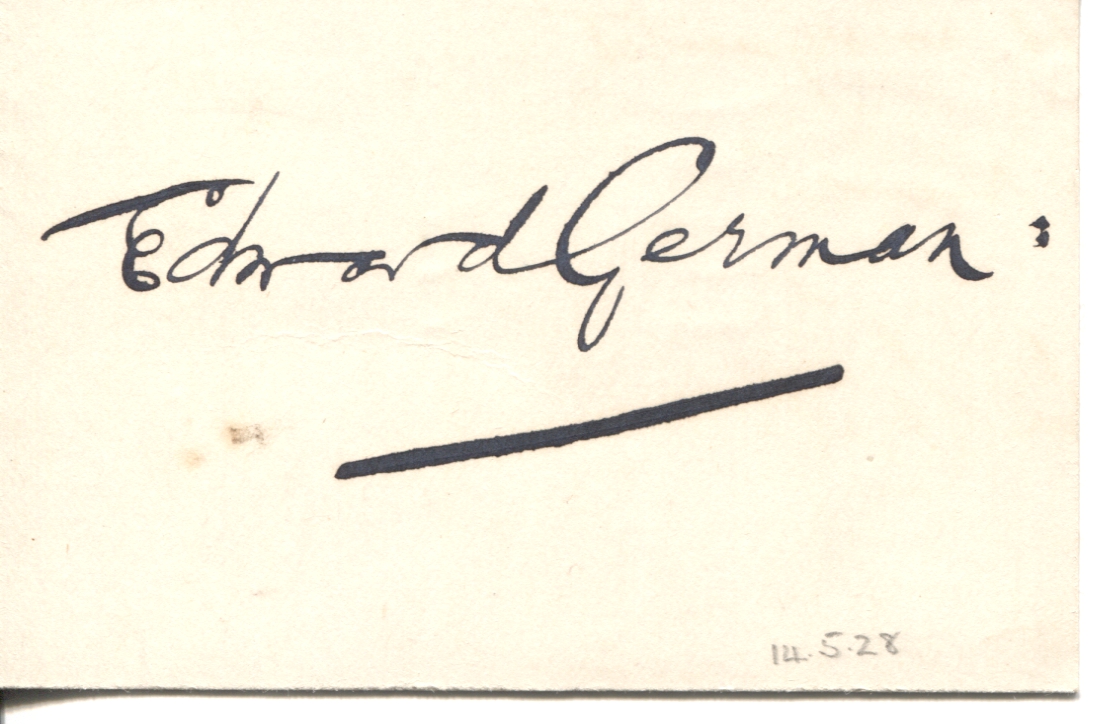 Edward German :
14.5.28